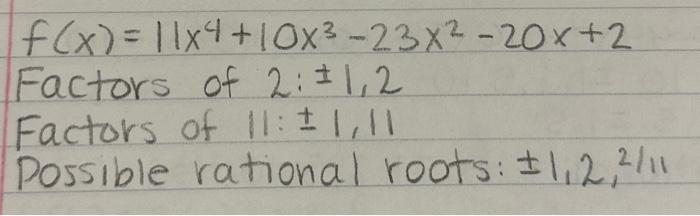 f(x) = 11x⁴ + 10x³ - 23x² - 20x + 2
Factors of 2: ± 1, 2
Factors of 11: ± 1, 11
Possible rational roots: ± 1, 2, 2/11